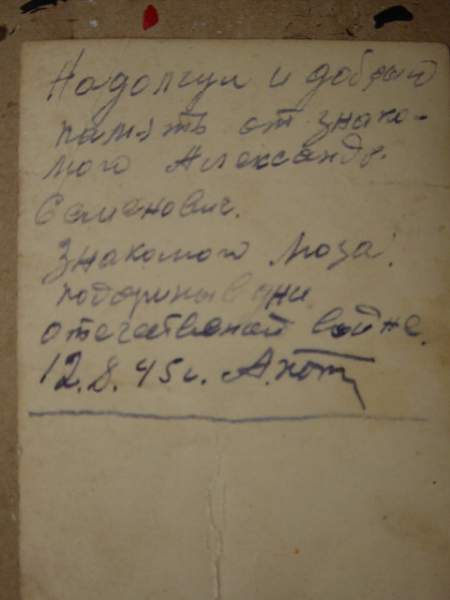 Надолгую и добрую
память от знако-
мого Александр.
Семенович.
Знакомого Моза.
в дни
отечественой войне.
12.8.45г. А.